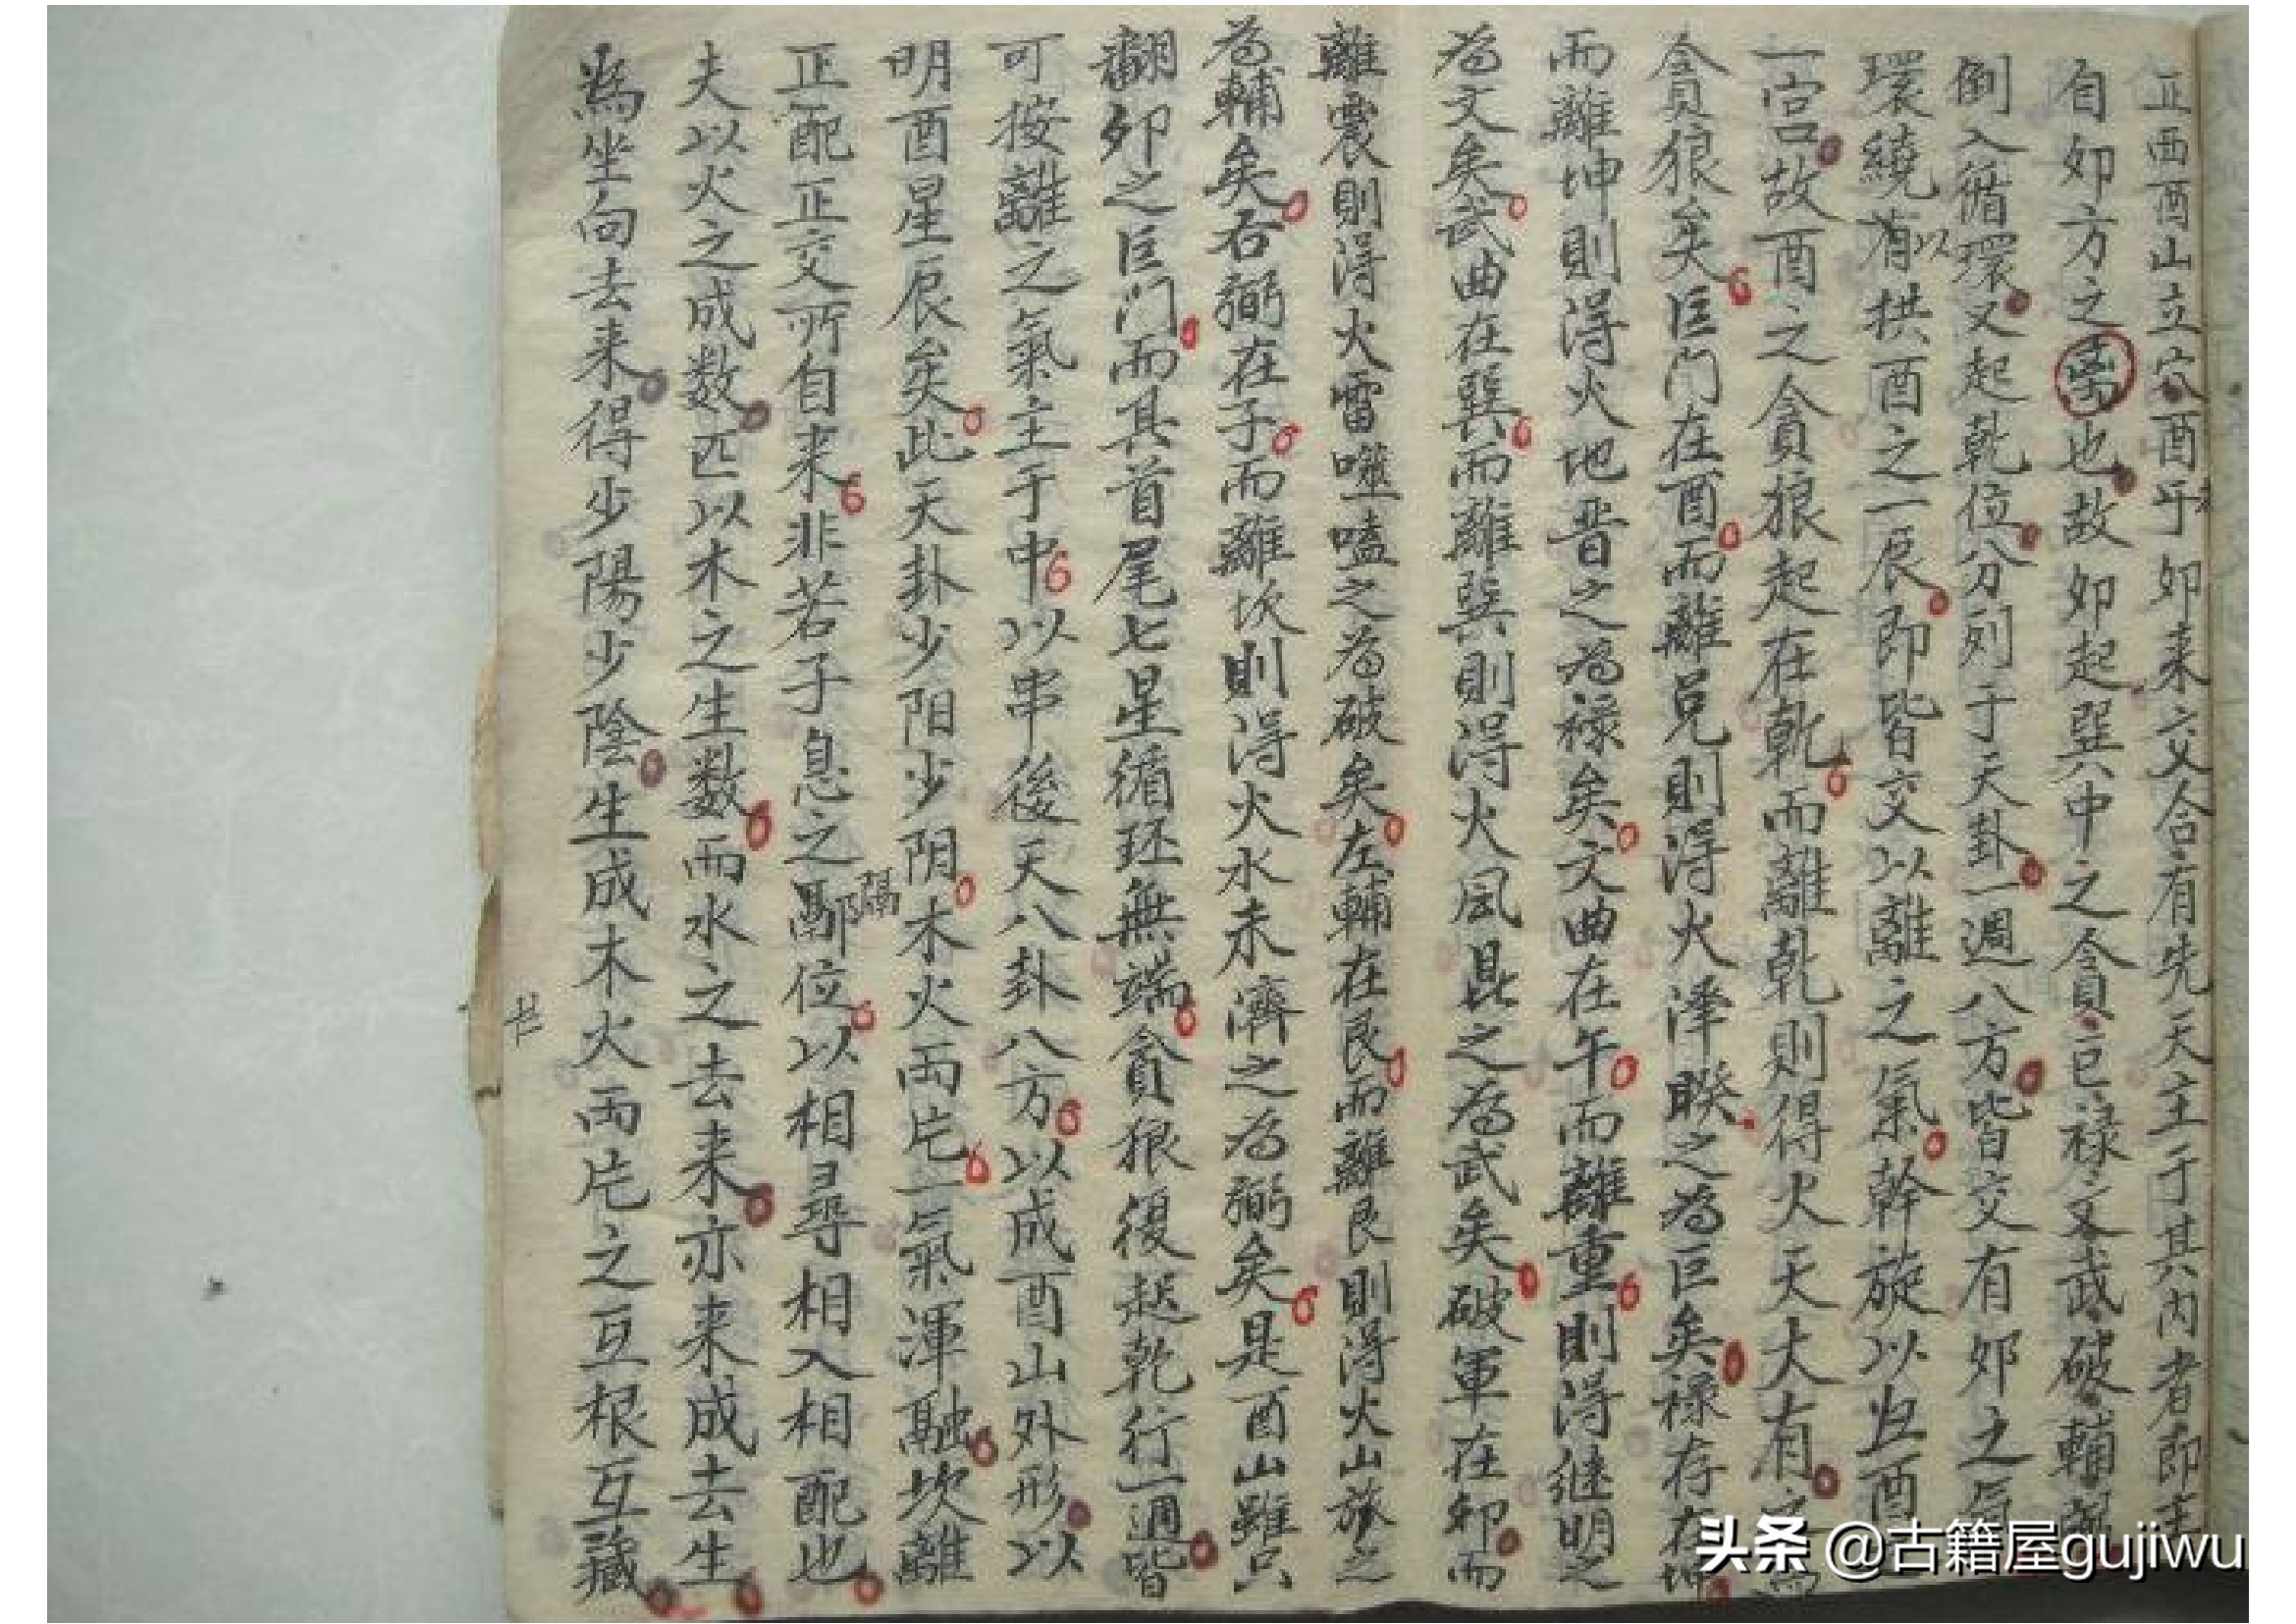 正西酉山立穴酉乎卯来交合有先天主于其内者即
自卯方之离也故卯起巽中之貪巨禄文武破輔
倒入循環又起乾位分列于天卦一週八方皆交有卯之气
環繞有以拱酉之一辰即皆交以離之氣幹旋以此酉
一宫故酉之貪狼起在乾而離乾則得火天大有之
貪狼矣巨门在酉而離兑則得火泽睽之為巨矣禄存在坤
而離坤則得火地晋之為禄矣文曲在午而離重則得継明之
為文矣武曲在巽而離巽則得火风鼎之為武矣破軍在卯而
離震則得火雷噬嗑之為破矣左輔在艮而離艮則得火山旅之
為輔矣右弼在子而離坎則得火水未濟之為弼矣是酉山雖只
翻卯之巨门而其首尾七星循环無端貪狼復起乾行一週皆
可按離之氣主于中以串後天八卦八方以成酉山外形以
明酉星辰矣此天卦少阳少阴木火両片一氣渾融坎離
正配正交所自来非若子息之鄰隔位以相尋相入相配也
夫以火之成数匹以木之生数而水之去来亦来成去生
為坐向去来得少陽少陰生成木火両片之互根互藏
廿
头条 @古籍屋gujiwu